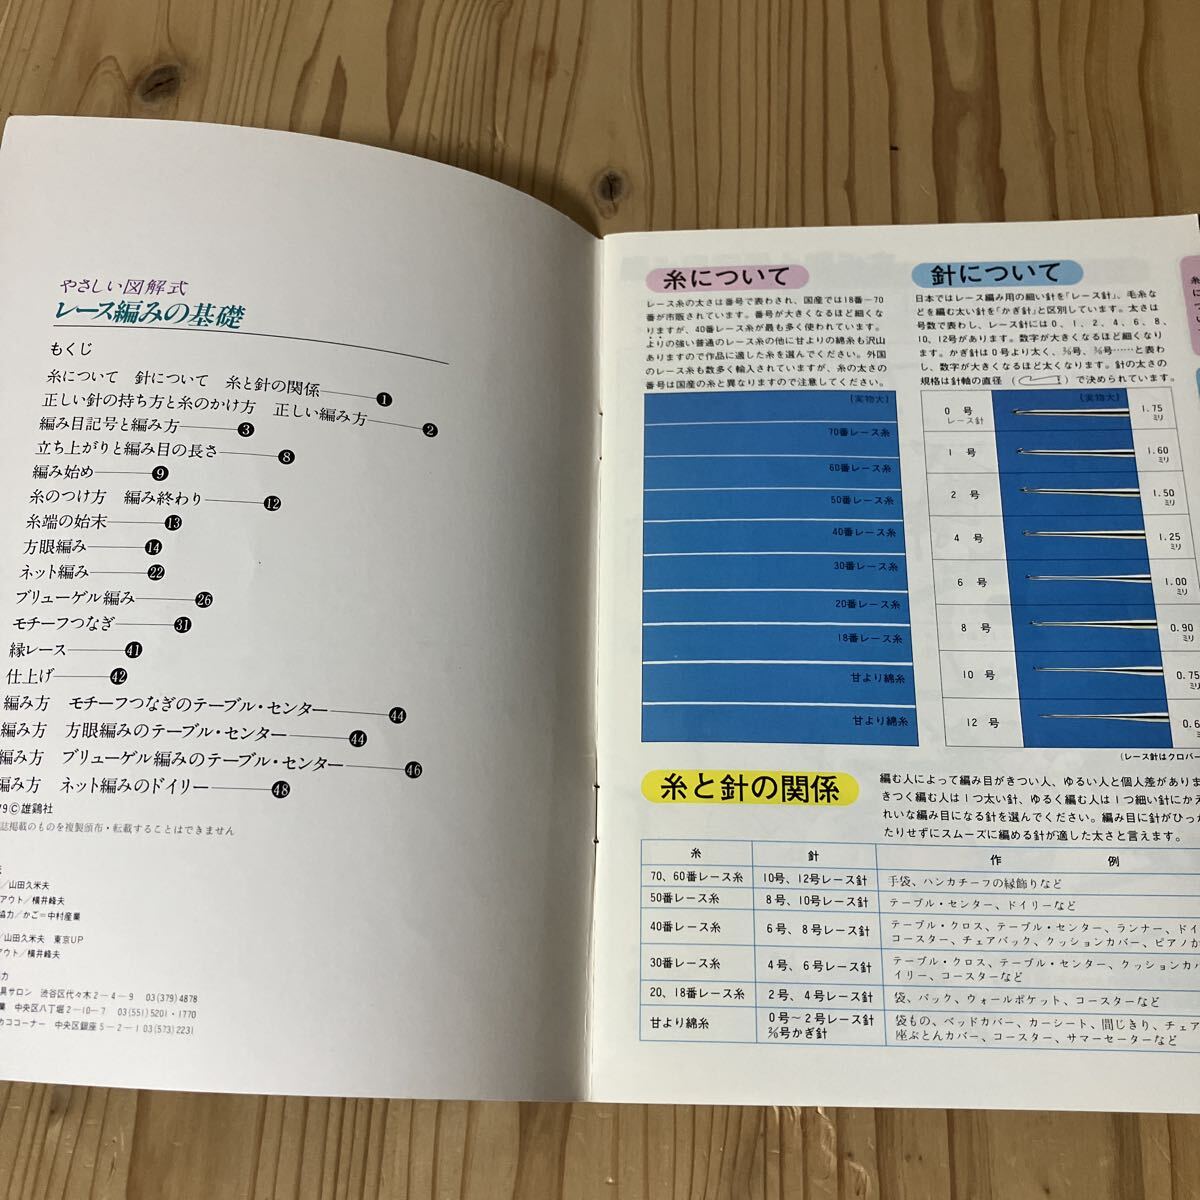 やさしい図解式
レース編みの基礎
もくじ
糸について 針について 糸と針の関係 1
正しい針の持ち方と糸のかけ方 正しい編み方 2
編み目記号と編み方 3
立ち上がりと編み目の長さ 8
編み始め 9
糸のつけ方 編み終わり 12
糸端の始末 13
方眼編み 14
ネット編み 22
ブリューゲル編み 26
モチーフつなぎ 31
縁レース 41
仕上げ 42
編み方 モチーフつなぎのテーブル・センター 44
編み方 方眼編みのテーブル・センター 44
編み方 ブリューゲル編みのテーブル・センター 46
編み方 ネット編みのドイリー 48
79©雄鶏社
誌掲載のものを複製頒布・転載することはできません
/山田久米夫
アウト/横井峰夫
協力/かご=中村産業
/山田久米夫 東京UP
アウト/横井峰夫
力
具サロン 渋谷区代々木2-4-9 03(379)4878
業 中央区八丁堀2-10-7 03(551)5201・1770
カココーナー 中央区銀座5-2-1 03(573)2231
糸について
レース糸の太さは番号で表わされ、国産では18番−70
番が市販されています。番号が大きくなるほど細くな
りますが、40番レース糸が最も多く使われています。
よりの強い普通のレース糸の他に甘よりの綿糸も沢山
ありますので作品に適した糸を選んでください。外国
のレース糸も数多く輸入されていますが、糸の太さの
番号は国産の糸と異なりますので注意してください。
(実物大)
70番レース糸
60番レース糸
50番レース糸
40番レース糸
30番レース糸
20番レース糸
18番レース糸
甘より綿糸
甘より綿糸
針について
日本ではレース編み用の細い針を「レース針」、毛糸な
どを編む太い針を「かぎ針」と区別しています。太さは
号数で表わし、レース針には0、1、2、4、6、8、
10、12号があります。数字が大きくなるほど細くなり
ます。かぎ針は0号より太く、2/0号、3/0号……と表わ
し、数字が大きくなるほど太くなります。針の太さの
規格は針軸の直径()で決められています。
(実物大)
0 号
レース針
1.75
ミリ
1 号
1.60
ミリ
2 号
1.50
ミリ
4 号
1.25
ミリ
6 号
1.00
ミリ
8 号
0.90
ミリ
10 号
0.75
ミリ
12 号
0.6
ミリ
(レース針はクロバー
糸と針の関係
編む人によって編み目がきつい人、ゆるい人と個人差がありま
きつく編む人は1つ太い針、ゆるく編む人は1つ細い針にかえ
れいな編み目になる針を選んでください。編み目に針がひっか
たりせずにスムーズに編める針が適した太さと言えます。
糸 針 作例
70、60番レース糸 10号、12号レース針 手袋、ハンカチーフの縁飾りなど
50番レース糸 8号、10号レース針 テーブル・センター、ドイリーなど
40番レース糸 6号、8号レース針 テーブル・クロス、テーブル・センター、ランナー、ドイ
コースター、チェアバック、クッションカバー、ピアノカ
30番レース糸 4号、6号レース針 テーブル・クロス、テーブル・センター、クッションカバ
イリー、コースターなど
20、18番レース糸 2号、4号レース針 袋、バック、ウォールポケット、コースターなど
甘より綿糸 0号〜2号レース針 袋もの、ベッドカバー、カーシート、間じきり、チェア
2/0号かぎ針 座ぶとんカバー、コースター、サマーセーターなど
糸
に
つ
い